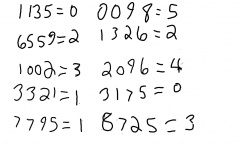 1135=0 0098=5
6559=2 1326=2
1002=3 2096=4
3321=1 3175=0
7795=1 8725=3